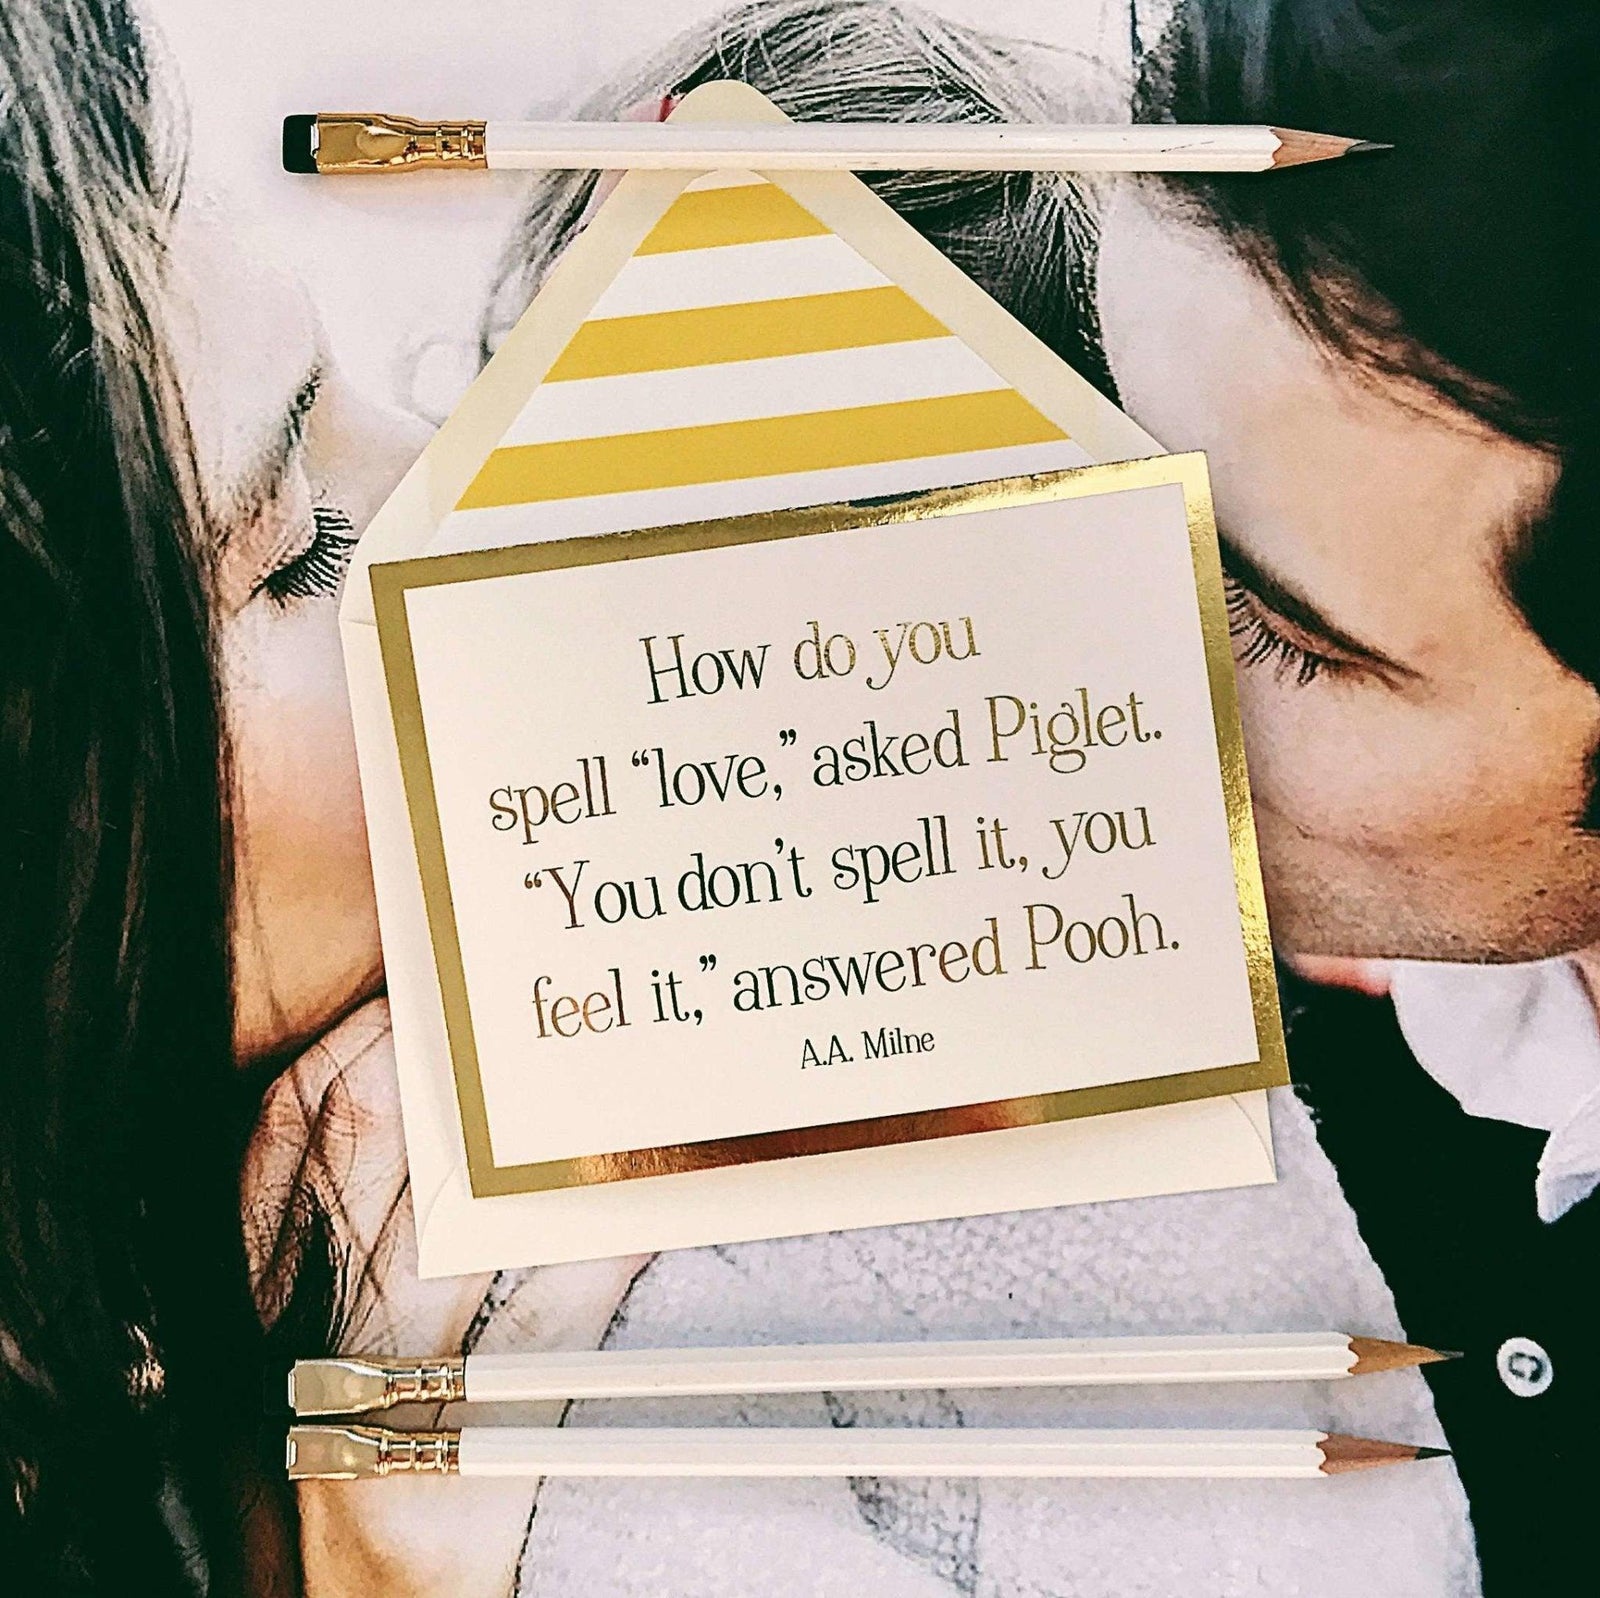 How do you
spell “love,” asked Piglet.
“You don’t spell it, you
feel it,” answered Pooh.
A.A. Milne